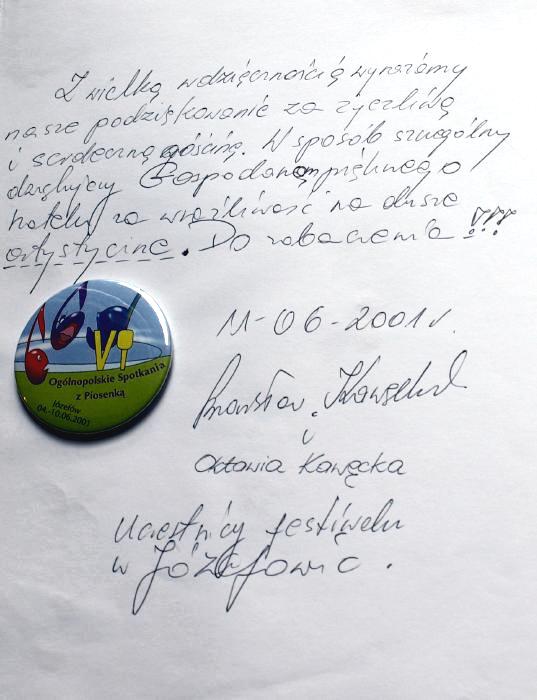 Z wielką wdzięcznością wyrażamy
nasze podziękowanie za życzliwą
i serdeczną gościnę. W sposób szczególny
dziękujemy Gospodarzom pięknego
hotelu za wrażliwość na dusze
artystyczne. Do zobaczenia !!!
VI
Ogólnopolskie Spotkania
z Piosenką
Józefów
04.-10.06.2001
11-06-2001r.
i
Oktawia Kawęcka
Uczestnicy festiwalu
w Józefowie.